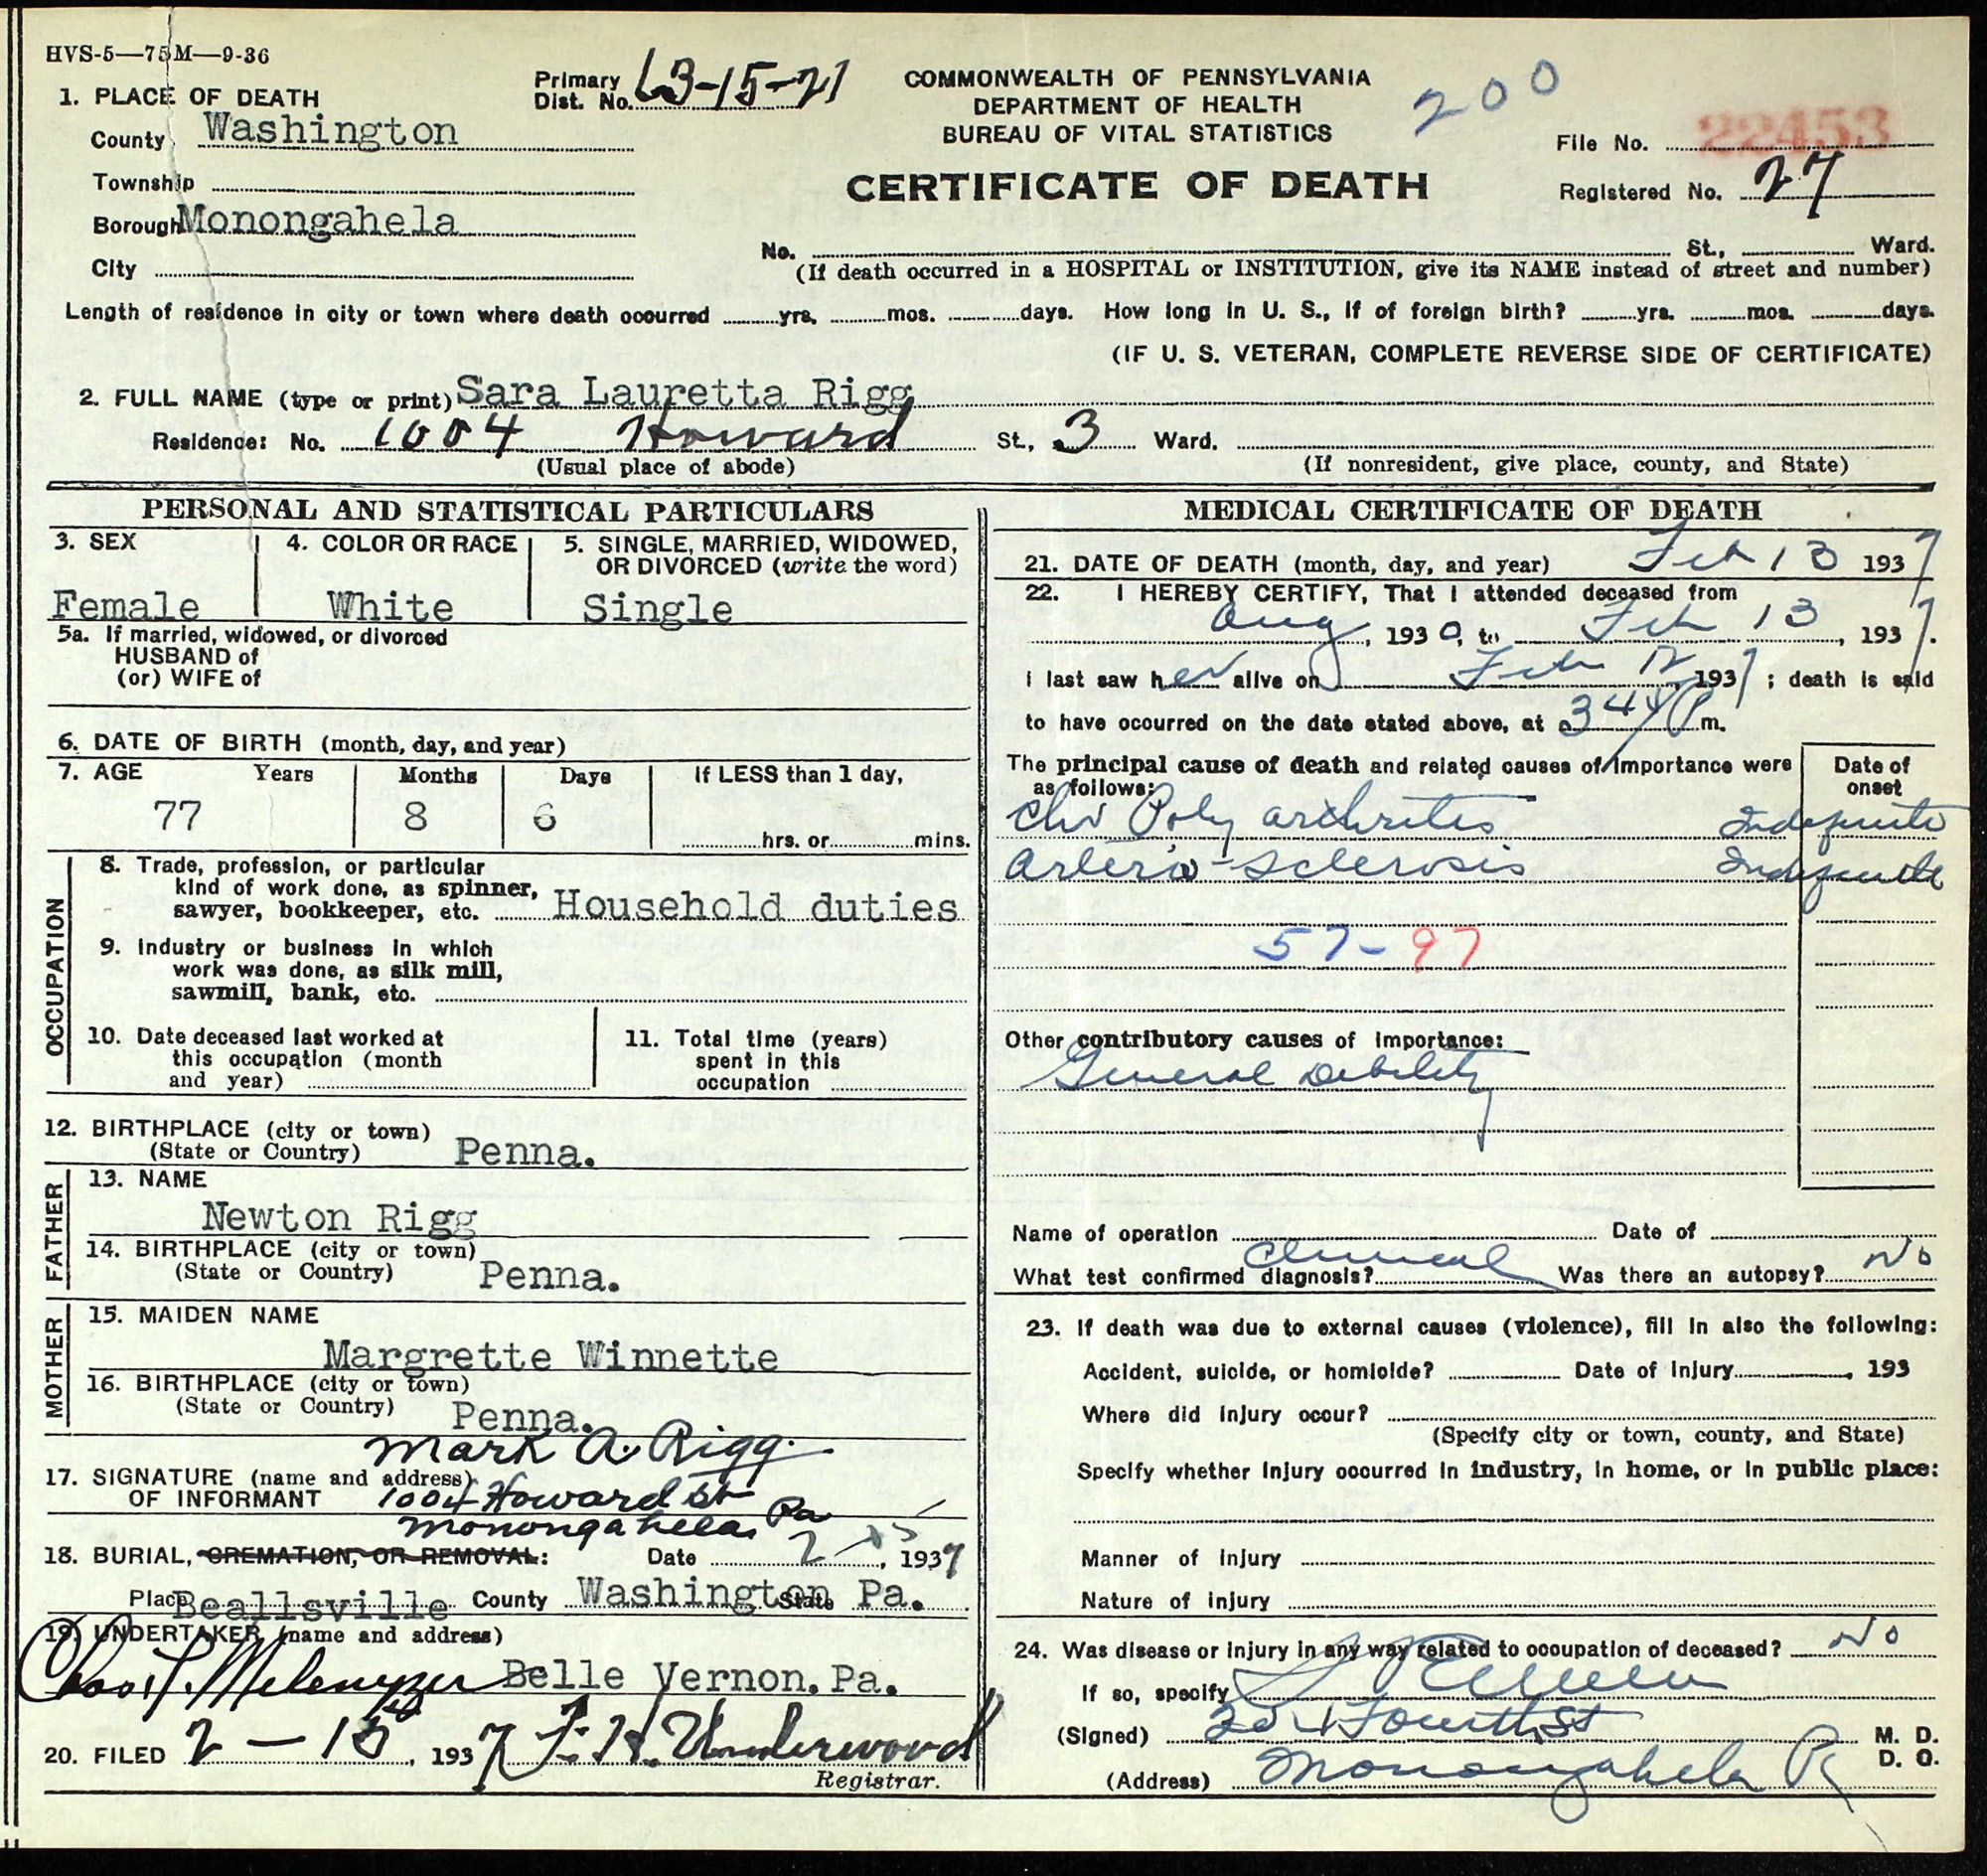 HVS-5—75M—9-36
1. PLACE OF DEATH
County Washington
Township
Borough Monongahela
City
Primary
Dist. No. 63-15-21
COMMONWEALTH OF PENNSYLVANIA
DEPARTMENT OF HEALTH
BUREAU OF VITAL STATISTICS
CERTIFICATE OF DEATH
200
File No. 22453
Registered No. 27
No. St., Ward.
(If death occurred in a HOSPITAL or INSTITUTION, give its NAME instead of street and number)
Length of residence in city or town where death occurred yrs. mos. days. How long in U. S., if of foreign birth? yrs. mos. days.
(IF U. S. VETERAN, COMPLETE REVERSE SIDE OF CERTIFICATE)
2. FULL NAME (type or print) Sara Lauretta Rigg
Residence: No. 1004 Howard St., 3 Ward.
(Usual place of abode) (If nonresident, give place, county, and State)
PERSONAL AND STATISTICAL PARTICULARS
3. SEX
Female
4. COLOR OR RACE
White
5. SINGLE, MARRIED, WIDOWED,
OR DIVORCED (write the word)
Single
5a. If married, widowed, or divorced
HUSBAND of
(or) WIFE of
6. DATE OF BIRTH (month, day, and year)
7. AGE Years Months Days If LESS than 1 day,
77 8 6 hrs. or mins.
OCCUPATION
8. Trade, profession, or particular
kind of work done, as spinner,
sawyer, bookkeeper, etc. Household duties
9. Industry or business in which
work was done, as silk mill,
sawmill, bank, etc.
10. Date deceased last worked at
this occupation (month
and year)
11. Total time (years)
spent in this
occupation
12. BIRTHPLACE (city or town)
(State or Country) Penna.
FATHER
13. NAME
Newton Rigg
14. BIRTHPLACE (city or town)
(State or Country) Penna.
MOTHER
15. MAIDEN NAME
Margrette Winnette
16. BIRTHPLACE (city or town)
(State or Country) Penna.
Mark A. Rigg.
17. SIGNATURE (name and address)
OF INFORMANT 1004 Howard St
Monongahela, Pa
18. BURIAL, CREMATION, OR REMOVAL: Date 2 , 1937
Place Beallsville County Washington State Pa.
19. UNDERTAKER (name and address)
Melenyzer Belle Vernon. Pa.
20. FILED 2 — 15, 1937 F. H. Underwood
Registrar.
MEDICAL CERTIFICATE OF DEATH
21. DATE OF DEATH (month, day, and year) Feb 13 1937
22. I HEREBY CERTIFY, That I attended deceased from
Aug, 1930, to Feb 13, 1937.
I last saw her alive on Feb 12, 1937; death is said
to have occurred on the date stated above, at 344 P m.
The principal cause of death and related causes of importance were
as follows:
Date of
onset
Chr Poly arthritis Indefinite
Arterio-sclerosis Indefinite
57-97
Other contributory causes of importance:
General Debility
Name of operation Date of
What test confirmed diagnosis? Clinical Was there an autopsy? No
23. If death was due to external causes (violence), fill in also the following:
Accident, suicide, or homicide? Date of Injury , 193
Where did Injury occur?
(Specify city or town, county, and State)
Specify whether Injury occurred in industry, in home, or in public place:
Manner of Injury
Nature of Injury
24. Was disease or injury in any way related to occupation of deceased? No
If so, specify
(Signed) Fourth St M. D.
D. O.
(Address) Monongahela Pa